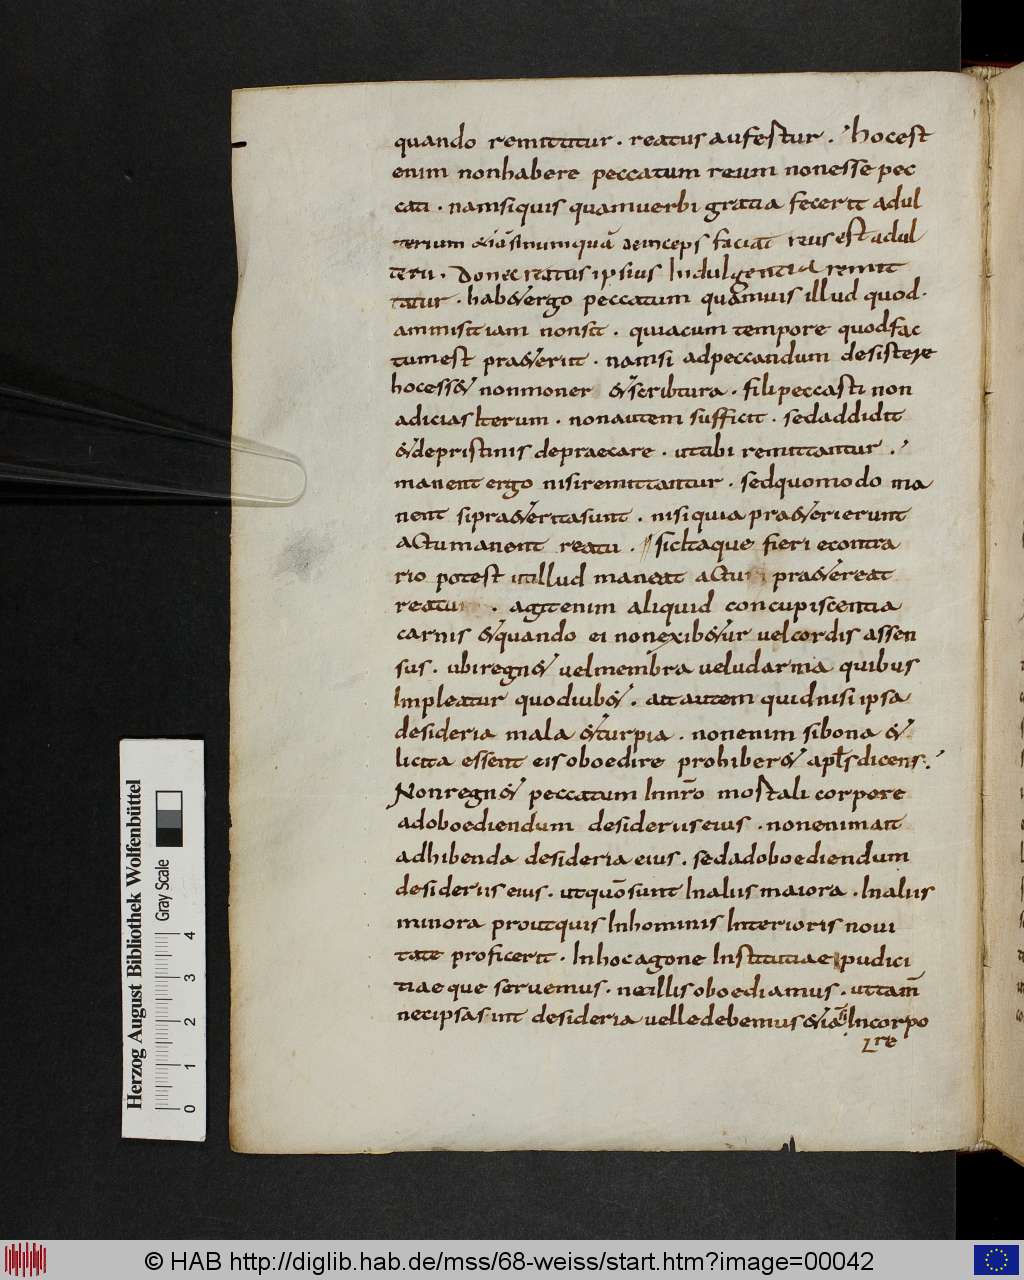 quando remittitur · reatus aufestur · hocest
enim nonhabere peccatum reum nonesse pec
cati · namsiquis quamuerbi gratia fecerit adul
terium &iā sinumquā deinceps faciat reus est adul
terii · donec reatus ipsius Indulgentia remit
tatur · hab&ergo peccatum quamuis illud quod·
ammisit iam nonsit · quiacum tempore quodfac
tumest pra&eriit · namsi adpeccandum desistere
hocess& nonmoner &scribtura · fili peccasti non
adicias Iterum · nonautem sufficit · sedaddidit
&depristinis depraecare · uttibi remittantur ·
manent ergo nisiremittantur · sedquomodo ma
nent sipra&eritasunt · nisi quia pra&erierunt
actu manent reatu · sicItaque fieri econtra
rio potest utillud maneat actu pra&ereat
reatu · agit enim aliquid concupiscentia
carnis &quando ei nonexib&ur uel cordis assen
sus · ubi regn& uel membra uelud arma quibus
Impleatur quodiub& · ait autem quid nisi ipsa
desideria mala &turpia · nonenim sibona &
licita essent eis oboedire prohiber& apłs dicens ·
Nonregn& peccatum Innr̄o mostali corpore
adoboediendum desideriis eius · nonenim ait
adhibenda desideria eius · sedadoboediendum
desideriis eius · utquō sunt Inaliis maiora · Inaliis
minora proutquis Inhominis Interioris noui
tate proficerit · Inhoc agone Institutiae pudici
tiaeque seruemus · neillis oboediamus · uttam̄
necipsa sint desideria uelle debemus &iā Incorpo
re
Herzog August Bibliothek Wolfenbüttel
Gray Scale
0 1 2 3 4
© HAB http://diglib.hab.de/mss/68-weiss/start.htm?image=00042